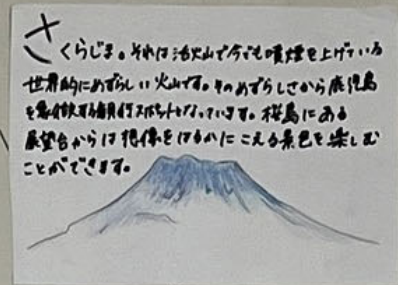 さくらじま。それは活火山で今でも噴煙を上げている
世界的にめずらしい火山です。そのめずらしさから鹿児島
を象徴する観光スポットとなっています。桜島にある
展望台からは想像をはるかにこえる景色を楽しむ
ことができます。